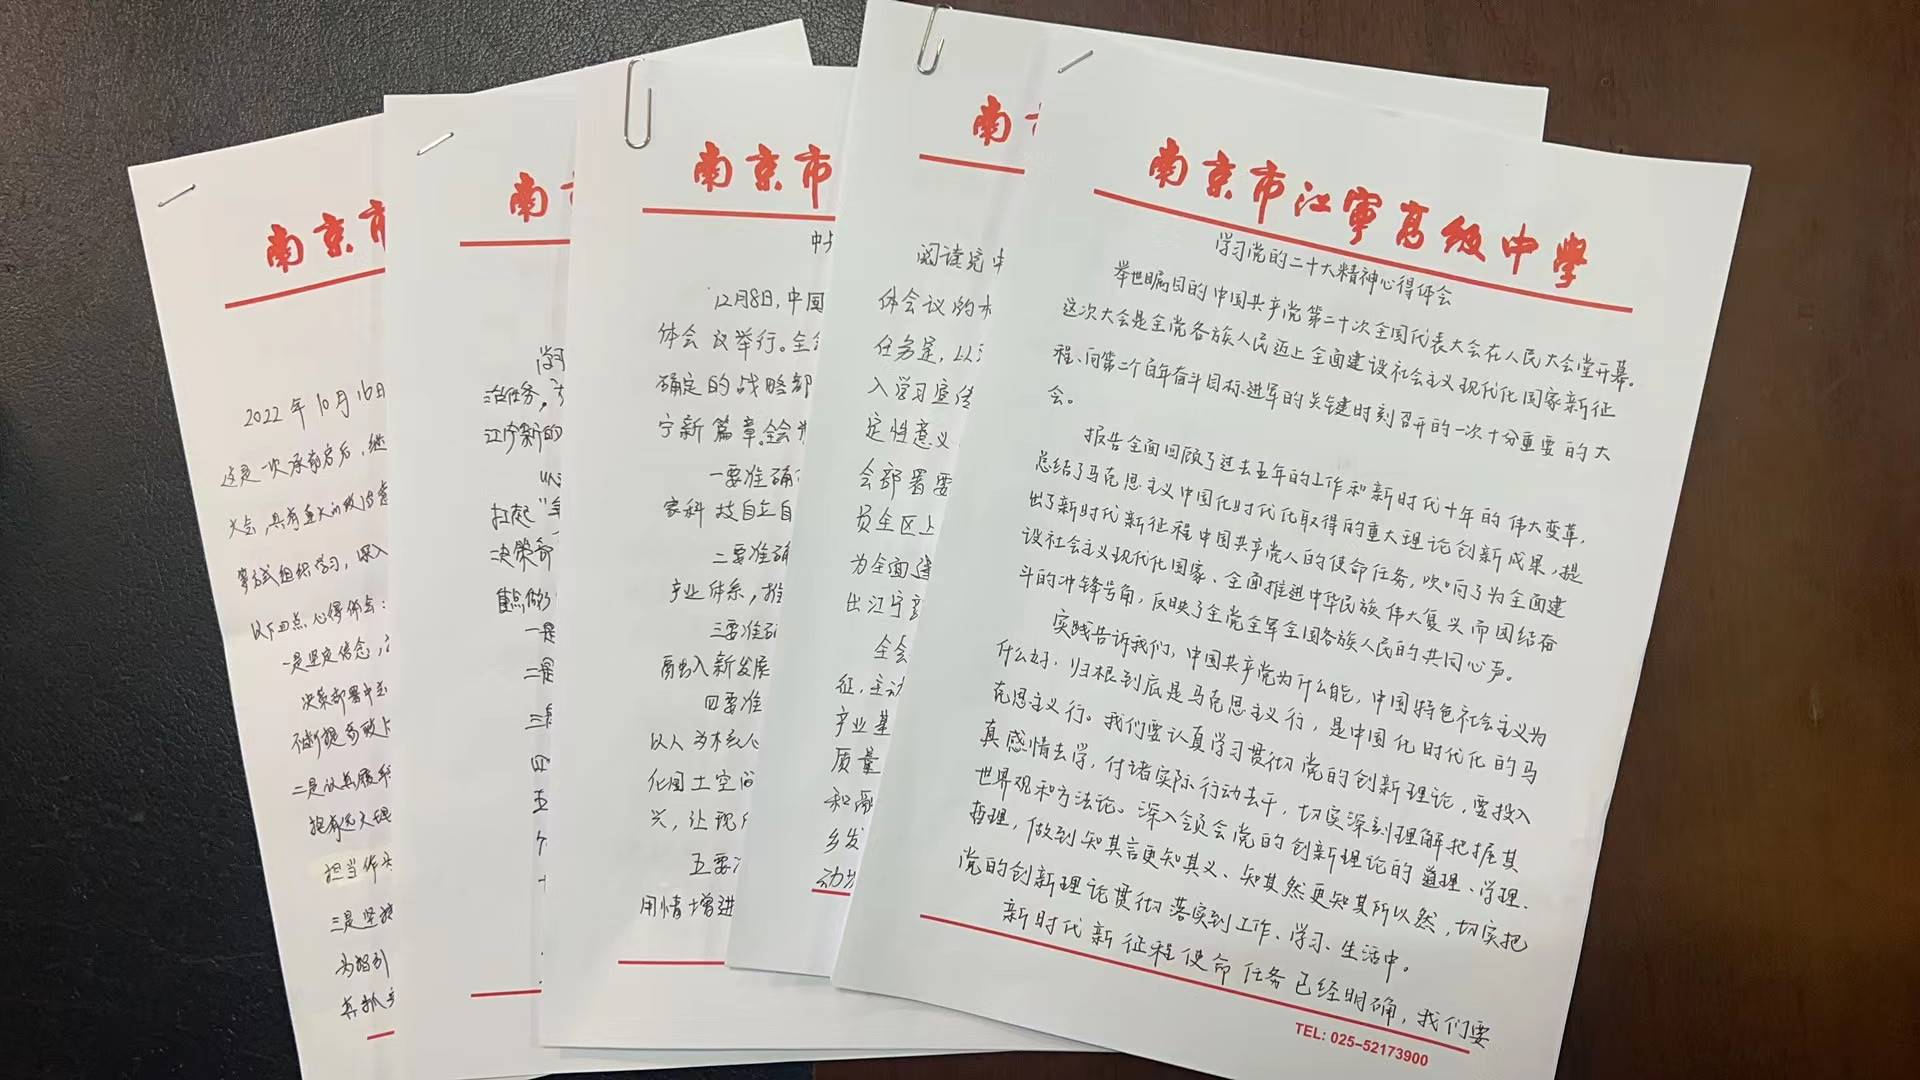 南京市
2022年10月16日
这是一次承前启后，继
大会，具有重大的政治意
等方式组织学习，深入
以下四点心得体会：
一是坚定信念，
决策部署中
不断提高政
二是认真履
担当作
三是坚
为指引
真抓
南
治任务，
江宁新的
扛起“
决策部
重点做好
一是
二是
三是
四
五
南京市
12月8日，中国
体会议举行。全会
确定的战略部
宁新篇章。全会
一要准确
家科技自立自
二要准确
产业体系，推
三要准确
融入新发展
四要准
以人为核心
化国土空间
兴，让现
五要
用情增进
南
阅读完中
体会议的
任务是，以
入学习宣传
定性意义
会部署要
员全区上
为全面建
出江宁
全会
征，主动
产业基
质量
和融
乡发
动
南京市江宁高级中学
学习党的二十大精神心得体会
举世瞩目的中国共产党第二十次全国代表大会在人民大会堂开幕。
这次大会是全党各族人民迈上全面建设社会主义现代化国家新征
程、向第二个百年奋斗目标进军的关键时刻召开的一次十分重要的大
会。
报告全面回顾了过去五年的工作和新时代十年的伟大变革，
总结了马克思主义中国化时代化取得的重大理论创新成果，提
出了新时代新征程中国共产党人的使命任务，吹响了为全面建
设社会主义现代化国家、全面推进中华民族伟大复兴而团结奋
斗的冲锋号角，反映了全党全军全国各族人民的共同心声。
实践告诉我们，中国共产党为什么能，中国特色社会主义为
什么好，归根到底是马克思主义行，是中国化时代化的马
克思主义行。我们要认真学习贯彻党的创新理论，要投入
真感情去学，付诸实际行动去干，切实深刻理解把握其
世界观和方法论。深入领会党的创新理论的道理、学理、
哲理，做到知其言更知其义、知其然更知其所以然，切实把
党的创新理论贯彻落实到工作、学习、生活中。
新时代新征程使命任务已经明确，我们要
TEL: 025-52173900